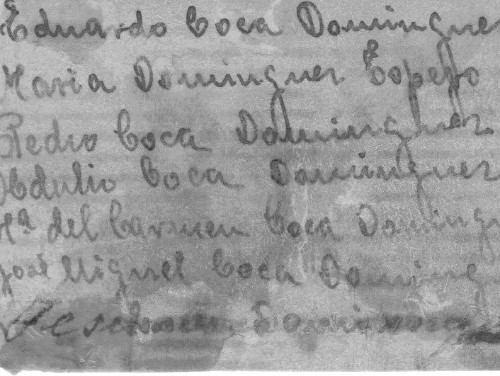 Eduardo Coca Domingue
Maria Dominguez Espejo
Pedro Coca Dominguez
Obdulio Coca Dominguez
Mª del Carmen Coca Domingu
José Miguel Coca Doming